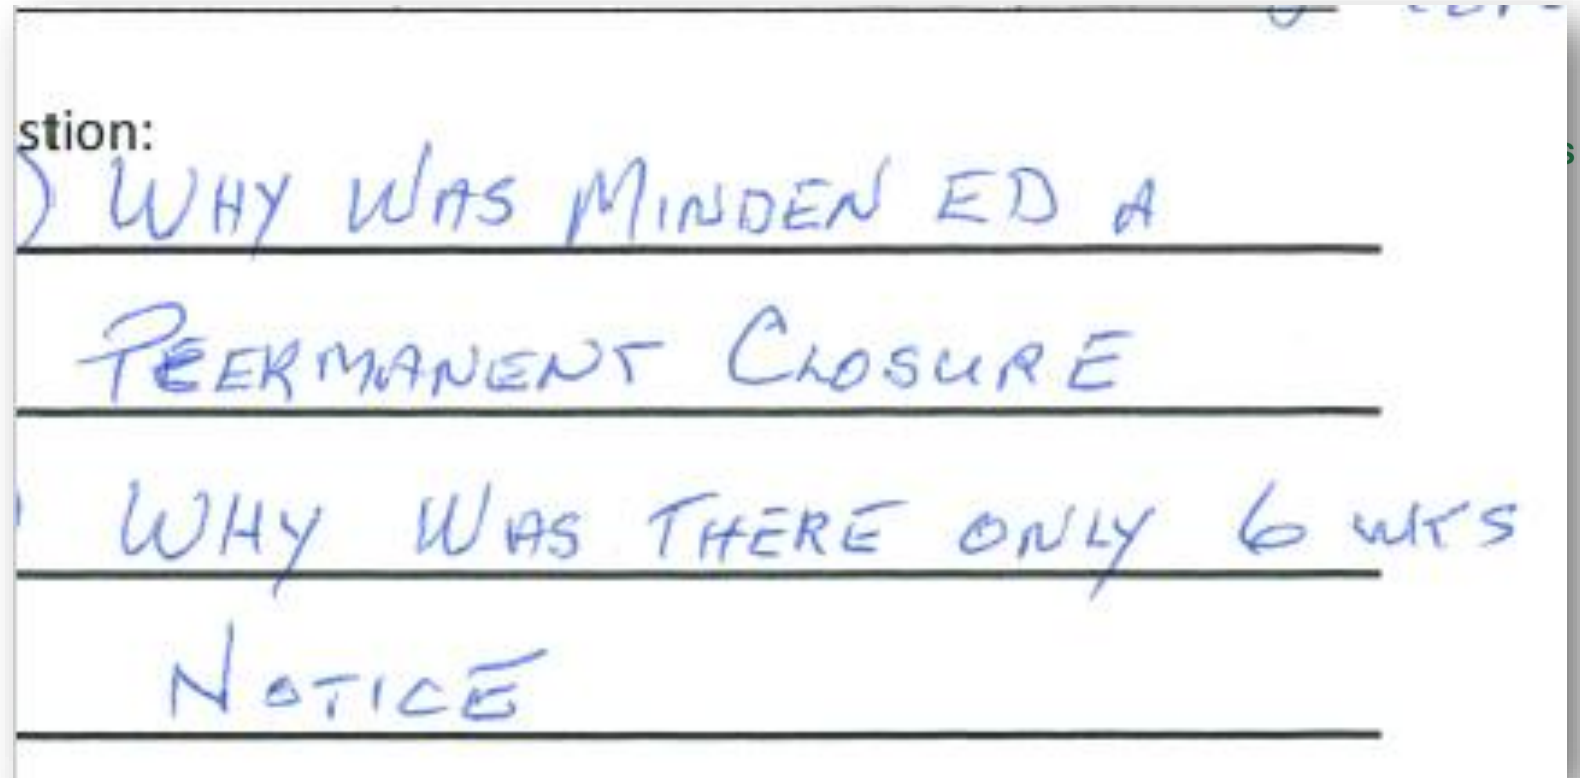 stion:
) WHY WAS MINDEN ED A
PEERMANENT CLOSURE
) WHY WAS THERE ONLY 6 WKS
NOTICE